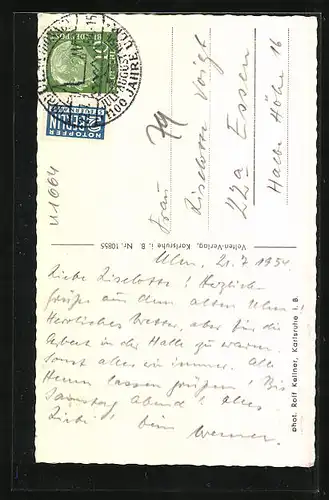 1100 JAHRE ULM
DEUTSCHE BUNDESPOST
10
NOTOPFER
2 BERLIN
STEUERMARKE
U1664
79
Frau
Liselotte Voigt
22a Essen
Halbe Höhe 16
Velten-Verlag, Karlsruhe i. B. Nr. 10855
phot. Rolf Kellner, Karlsruhe i. B.
Ulm, 21.7.1954
Liebe Liselotte! Herzlich-
grüße aus dem alten Ulm
Herrliches Wetter, aber für die
Arbeit in der Halle zu warm.
Sonst alles wie immer. Alle
Herren lassen grüßen! Bis
Samstag Abend! Alles
Liebe! Dein Werner.